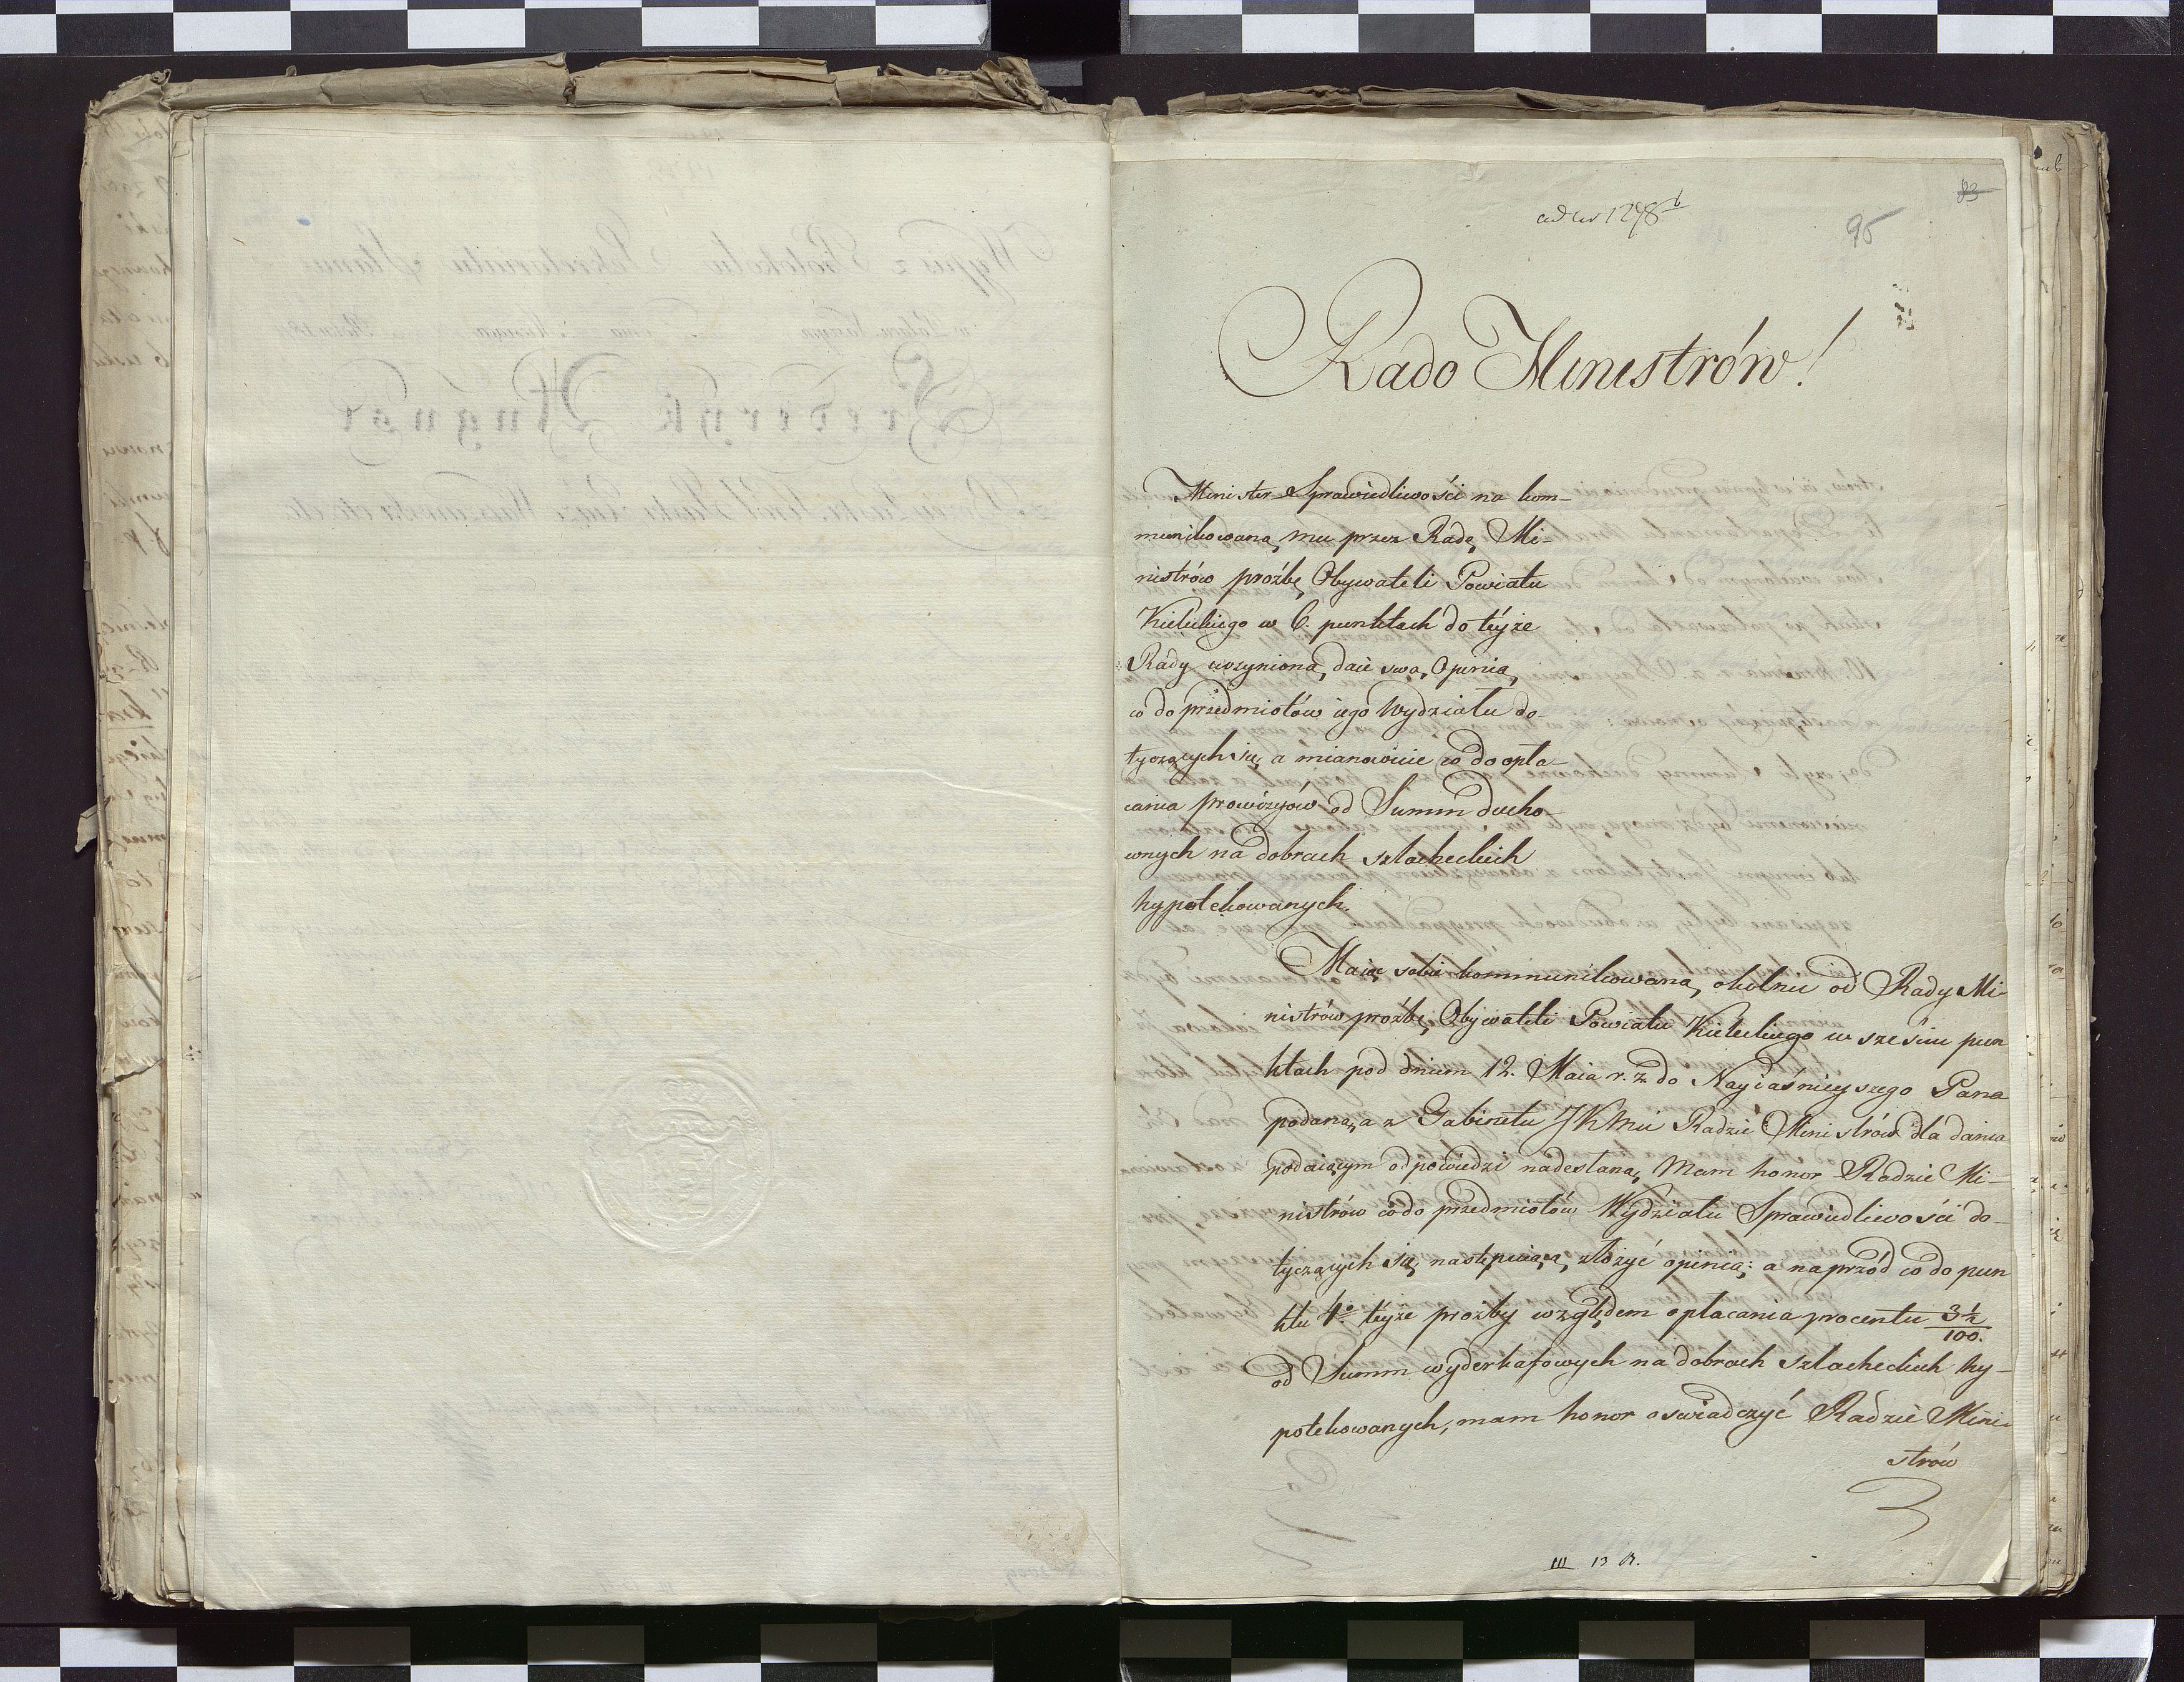 ad № 1298 b
83
95
Rado Ministrów!
Minister Sprawiedliwości na kom-
munikowaną mu przez Radę Mi-
nistrów proźbę Obywateli Powiatu
Kieleckiego w 6. punktach do teyże
Rady uczynioną, daie swą Opinią,
co do przedmiotów iego Wydziału do-
tyczących się, a mianowicie co do opła-
cania prowizyów od Summ ducho-
wnych na dobrach szlacheckich
hypotekowanych.
Maiąc sobie kommunikowaną okolnie od Rady Mi-
nistrów proźbę Obywateli Powiatu Kieleckiego w sześciu pun
ktach pod dniem 12. Maia r. z. do Nayiaśnieyszego Pana
podaną, a z Gabinetu JKMci Radzie Ministrów dla dania
podaiącym odpowiedzi nadesłaną, Mam honor Radzie Mi-
nistrów co do przedmiotów Wydziału Sprawiedliwości do-
tyczących się, następuiącą złożyć opinią: a naprzód co do pun
ktu 4º teyże proźby względem opłacania procentu 3½/100.
od Summ wyderkafowych na dobrach szlacheckich hy-
potekowanych, mam honor oświadczyć Radzie Mini-
strów
III 13 R.